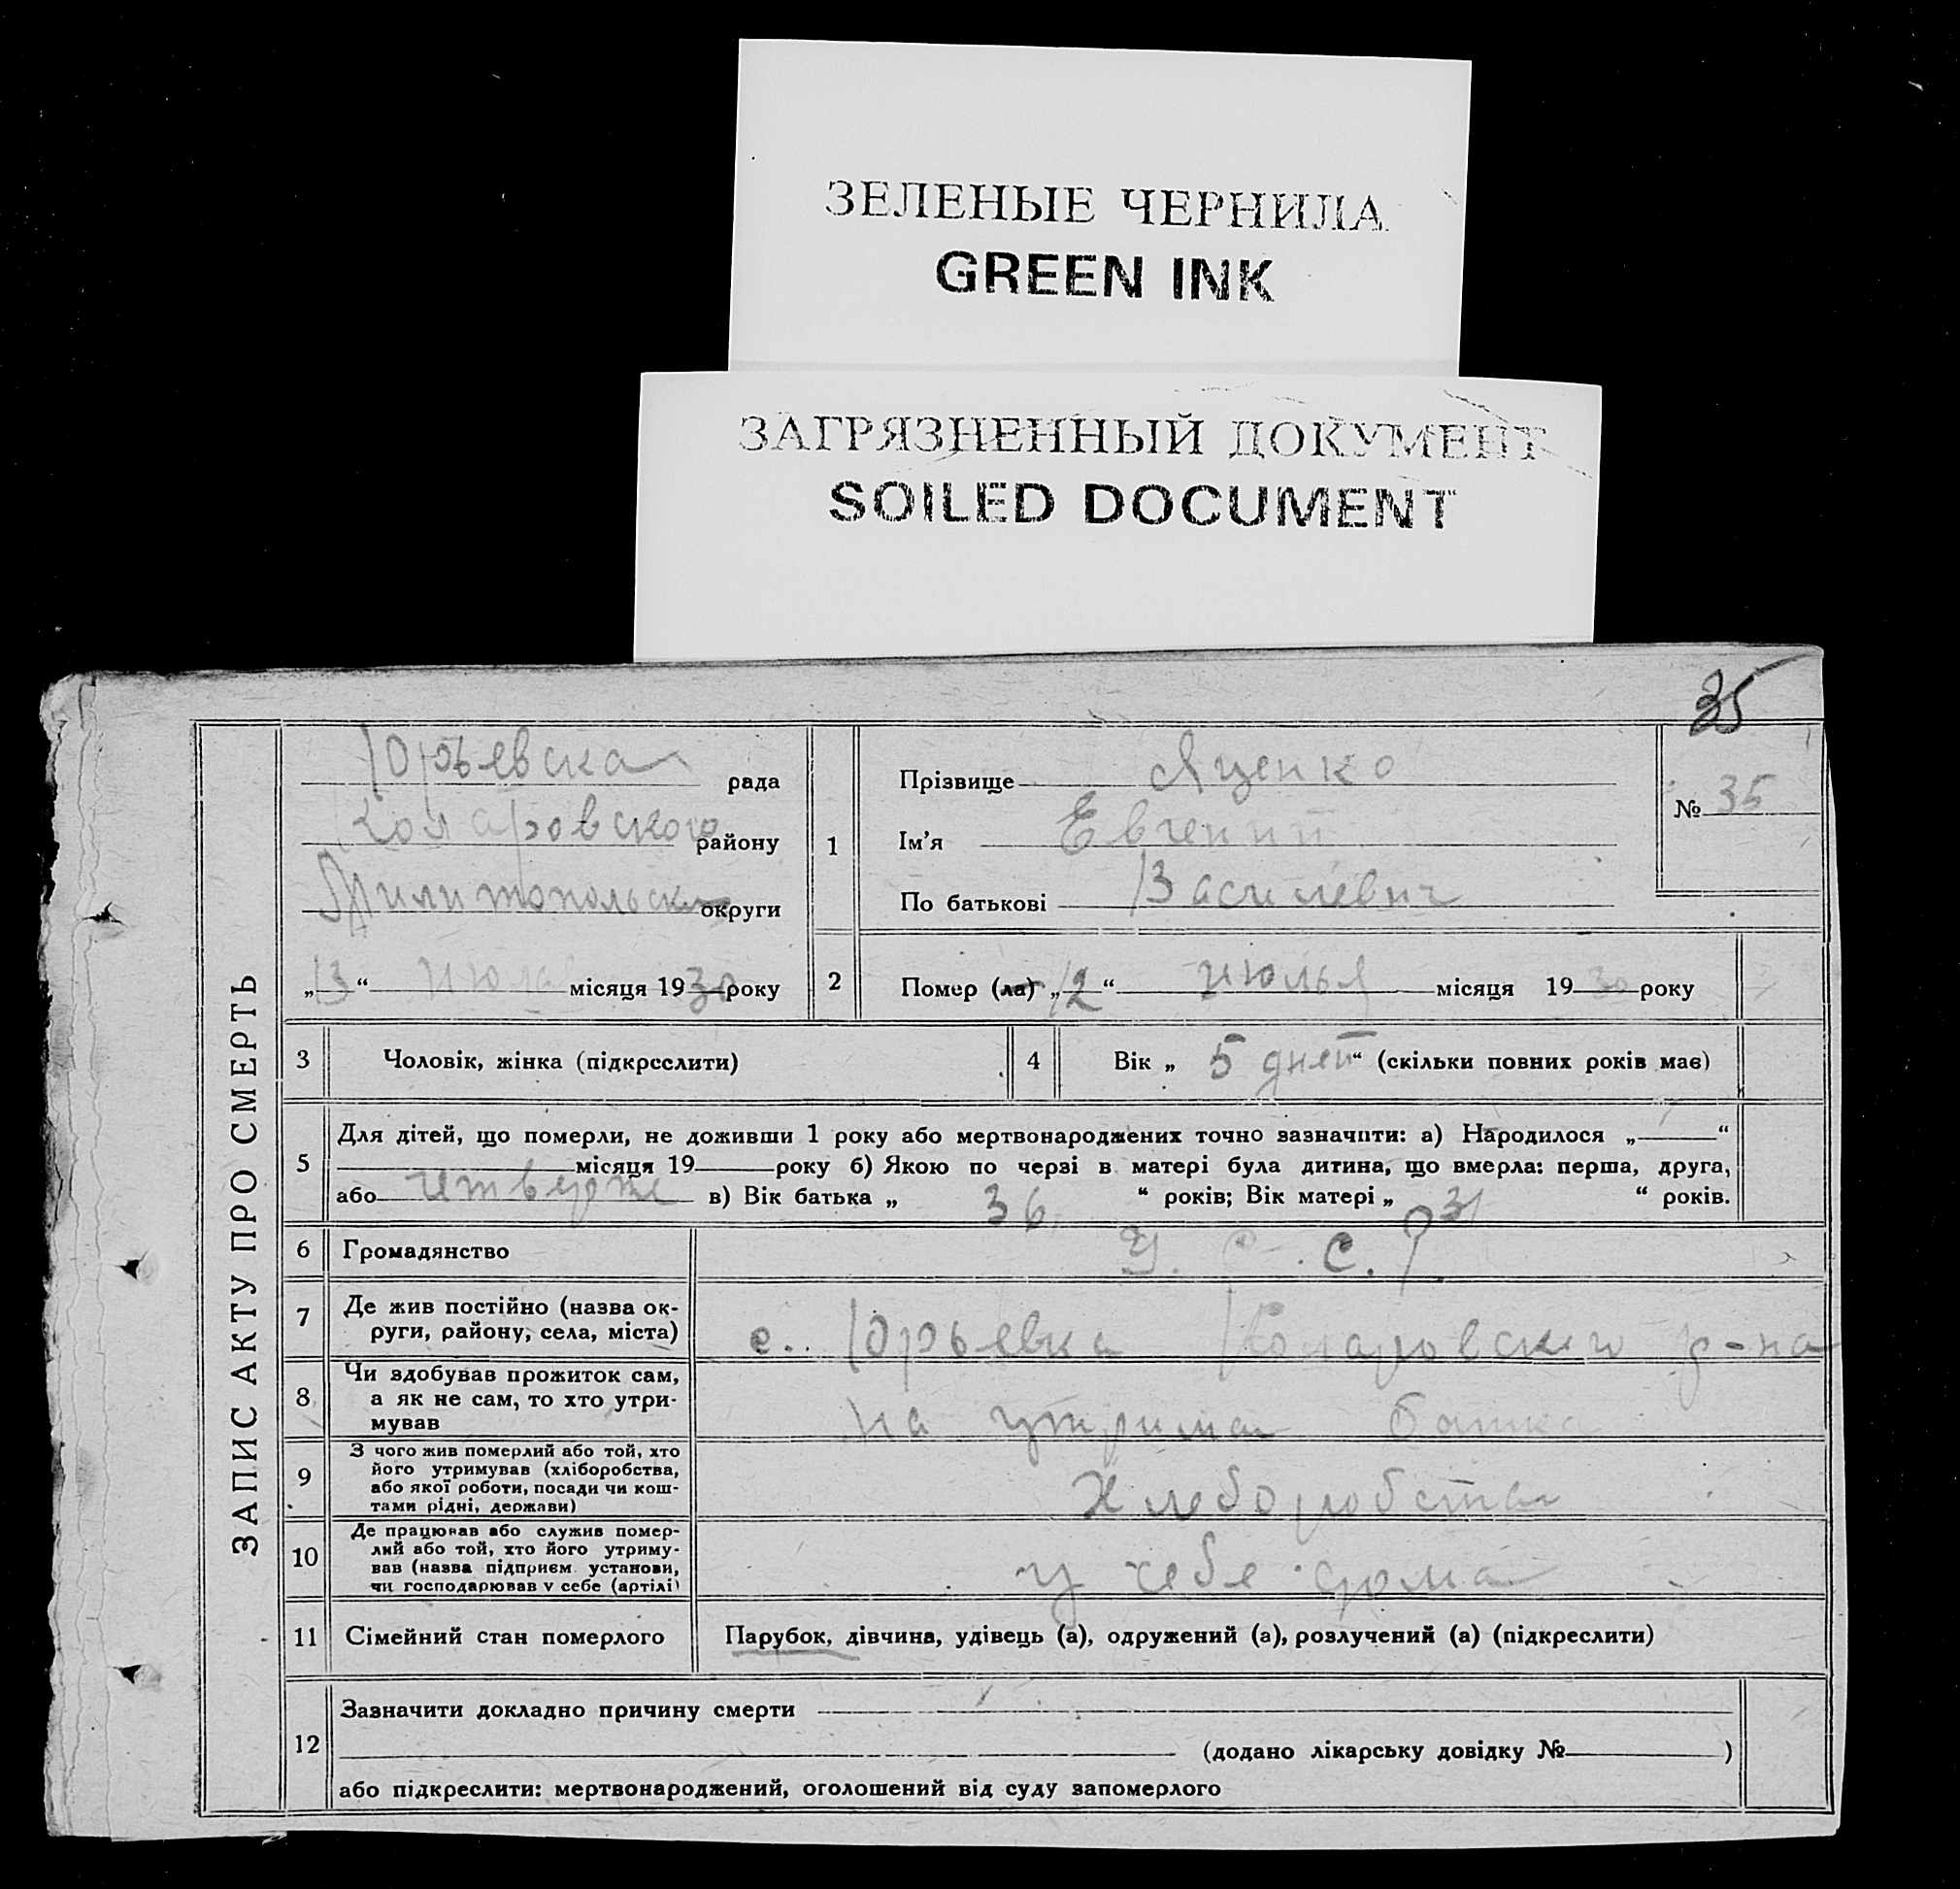 ЗЕЛЕНЫЕ ЧЕРНИЛА
GREEN INK
ЗАГРЯЗНЕННЫЙ ДОКУМЕНТ
SOILED DOCUMENT
35
ЗАПИС АКТУ ПРО СМЕРТЬ
Юрьевска рада
Коларовского району
округи
„13“ июля місяця 1930 року
1
Прізвище Яценко
Ім’я Евгений
По батькові Василевич
№ 35
2 Помер (ла) „12“ июлья місяця 1930 року
3 Чоловік, жінка (підкреслити)
4 Вік „5 дней“ (скільки повних років має)
5 Для дітей, що померли, не доживши 1 року або мертвонароджених точно зазначити: а) Народилося „ “
місяця 19 року б) Якою по черзі в матері була дитина, що вмерла: перша, друга,
або в) Вік батька „ 36 “ років; Вік матері „ 31 “ років.
6 Громадянство У. С. С. Р.
7 Де жив постійно (назва ок-
руги, району, села, міста)
с. Юрьевка Коларовского р-на
8 Чи здобував прожиток сам,
а як не сам, то хто утри-
мував
на утрима батька
9 З чого жив померлий або той, хто
його утримував (хліборобства,
або якої роботи, посади чи кош-
тами рідні, держави)
Хлеборобства
10 Де працював або служив помер-
лий або той, хто його утриму-
вав (назва підприєм. установи,
чи господарював у себе (артілі)
у себе дома
11 Сімейний стан померлого Парубок, дівчина, удівець (а), одружений (а), розлучений (а) (підкреслити)
12 Зазначити докладно причину смерти
(додано лікарську довідку № )
або підкреслити: мертвонароджений, оголошений від суду запомерлого